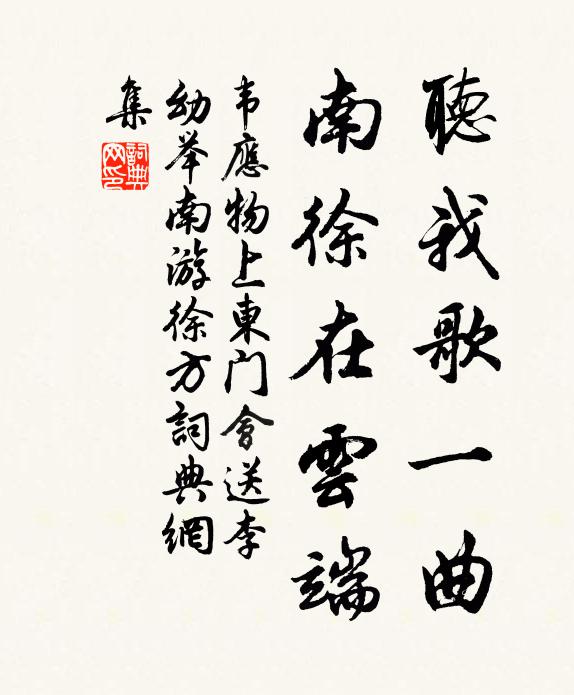 聽我歌一曲
南徐在雲端
韦應物上東門會送李
幼举南游徐方詞典網
集
詞典
网印